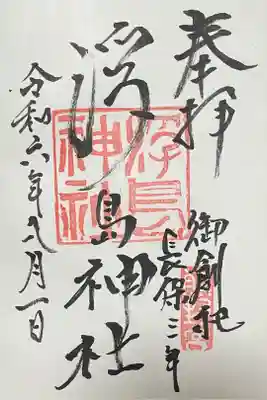 奉拝
御創祀
長保三年
浮島神社
浮島神社
令和六年八月一日